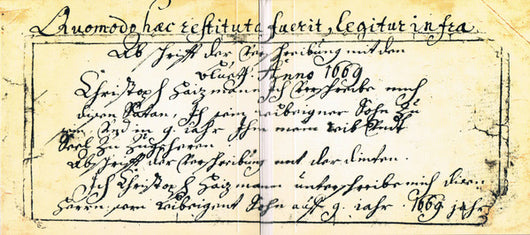 Quomodo hæc restituta fuerit, legitur infra
Abschrifft der Verschreibung mit dem
bluett. Anno 1669
Christoph Haizmann Ich verschreibe mich
disen Satan, Ich sein leibeigner Sohn zu
sein, und in 9. iahr Ihm mein leib und
Seel zu zugeheren.
Abschrifft der Verschreibung mit der dinten.
Ich Christoph Haizmann unterschreibe mich disen
Herrn, sein leibeigent Sohn auff 9. iahr. 1669 jahr